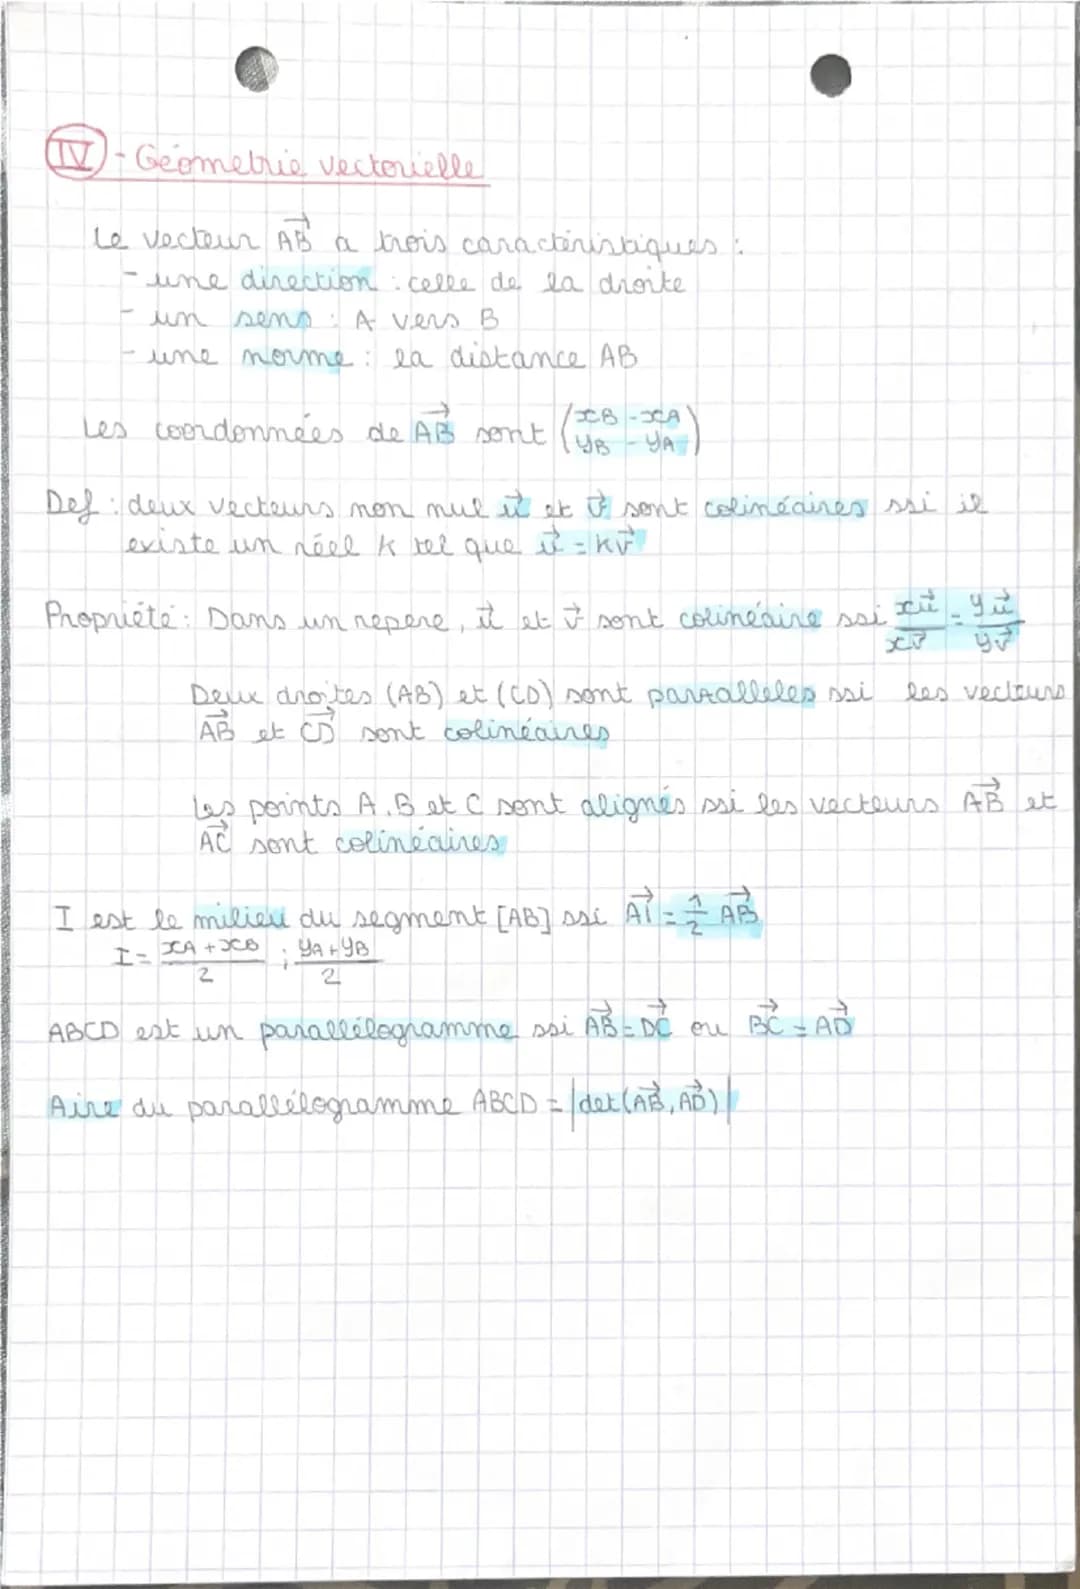 IV - Géometrie vectorielle
Le vecteur \(\overrightarrow{AB}\) a trois caractéristiques :
- une direction : celle de la droite
- un sens : A vers B
- une norme : la distance AB
Les coordonnées de \(\overrightarrow{AB}\) sont \(\begin{pmatrix} x_B - x_A \\ y_B - y_A \end{pmatrix}\)
Def : deux vecteurs non nul \(\vec{u}\) et \(\vec{v}\) sont colinéaires ssi il
existe un réel k tel que \(\vec{u} = k\vec{v}\)
Propriété : Dans un repere, \(\vec{u}\) et \(\vec{v}\) sont colinéaire ssi \(\frac{x_{\vec{u}}}{x_{\vec{v}}} = \frac{y_{\vec{u}}}{y_{\vec{v}}}\)
Deux droites (AB) et (CD) sont parralleles ssi les vecteurs
\(\overrightarrow{AB}\) et \(\overrightarrow{CD}\) sont colinéaires
Les points A, B et C sont alignés ssi les vecteurs \(\overrightarrow{AB}\) et
\(\overrightarrow{AC}\) sont colinéaires
I est le milieu du segment [AB] ssi \(\overrightarrow{AI} = \frac{1}{2} \overrightarrow{AB}\)
I = \(\frac{x_A + x_B}{2} ; \frac{y_A + y_B}{2}\)
ABCD est un parallélogramme ssi \(\overrightarrow{AB} = \overrightarrow{DC}\) ou \(\overrightarrow{BC} = \overrightarrow{AD}\)
Aire du parallélogramme ABCD = \(|det(\overrightarrow{AB}, \overrightarrow{AD})|\)